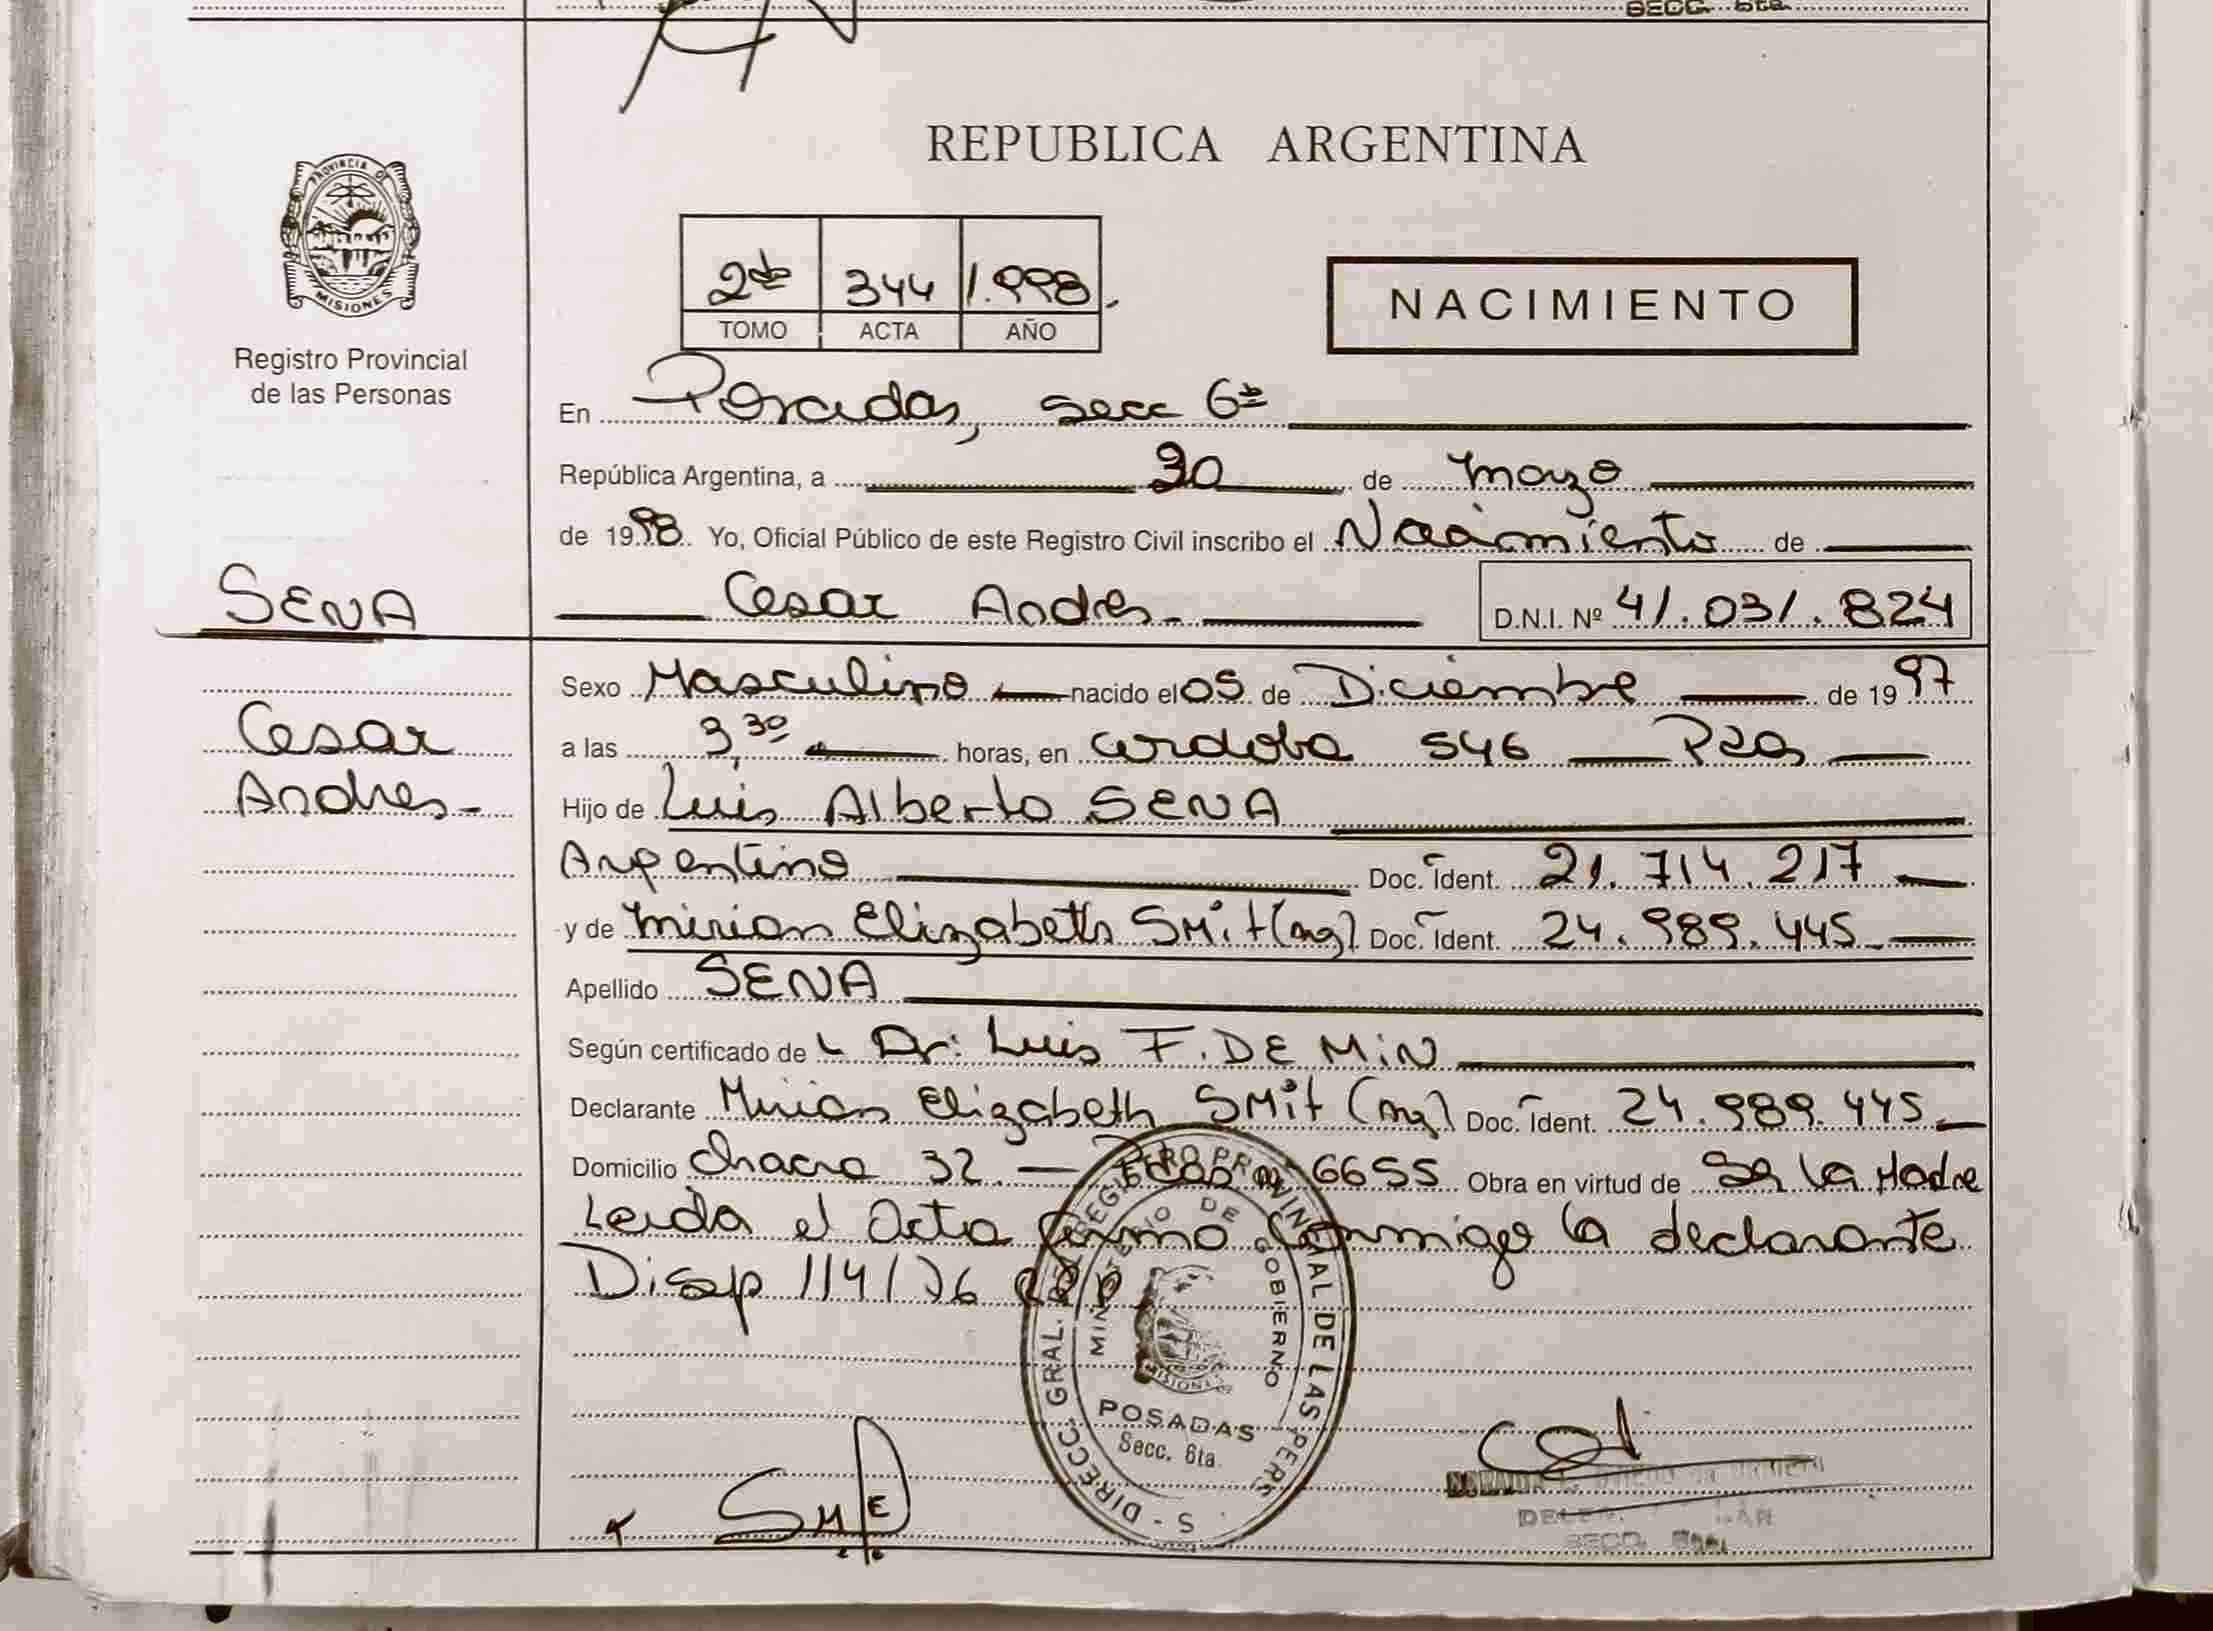 SECC. 6ta.
PROVINCIA DE
MISIONES
Registro Provincial
de las Personas
REPUBLICA ARGENTINA
2do 344 1.998.
TOMO ACTA AÑO
NACIMIENTO
En Posadas, secc 6ta
República Argentina, a 20 de mayo
de 1998. Yo, Oficial Público de este Registro Civil inscribo el Nacimiento de
SENA
Cesar Andres. D.N.I. Nº 41.031.824
Sexo Masculino nacido el 05 de Diciembre de 1997
Cesar
a las 3,30 horas, en Cordoba 546 Pdas
Andres.
Hijo de Luis Alberto SENA
Argentino Doc. Ident. 21.714.217
y de Mirian Elizabeth SMit (arg) Doc. Ident. 24.989.445
Apellido SENA
Según certificado de Dr. Luis F. DE MiN
Declarante Mirian Elizabeth SMit (arg) Doc. Ident. 24.989.445
Domicilio chacra 32. 6655 Obra en virtud de Ser la Madre
Leida el Acta firma conmigo la declarante
Disp 114/96
DIRECC. GRAL. DEL REGISTRO PROVINCIAL DE LAS PERS
MINISTERIO DE GOBIERNO
MISIONES
POSADAS
Secc. 6ta.
SME
SECC.